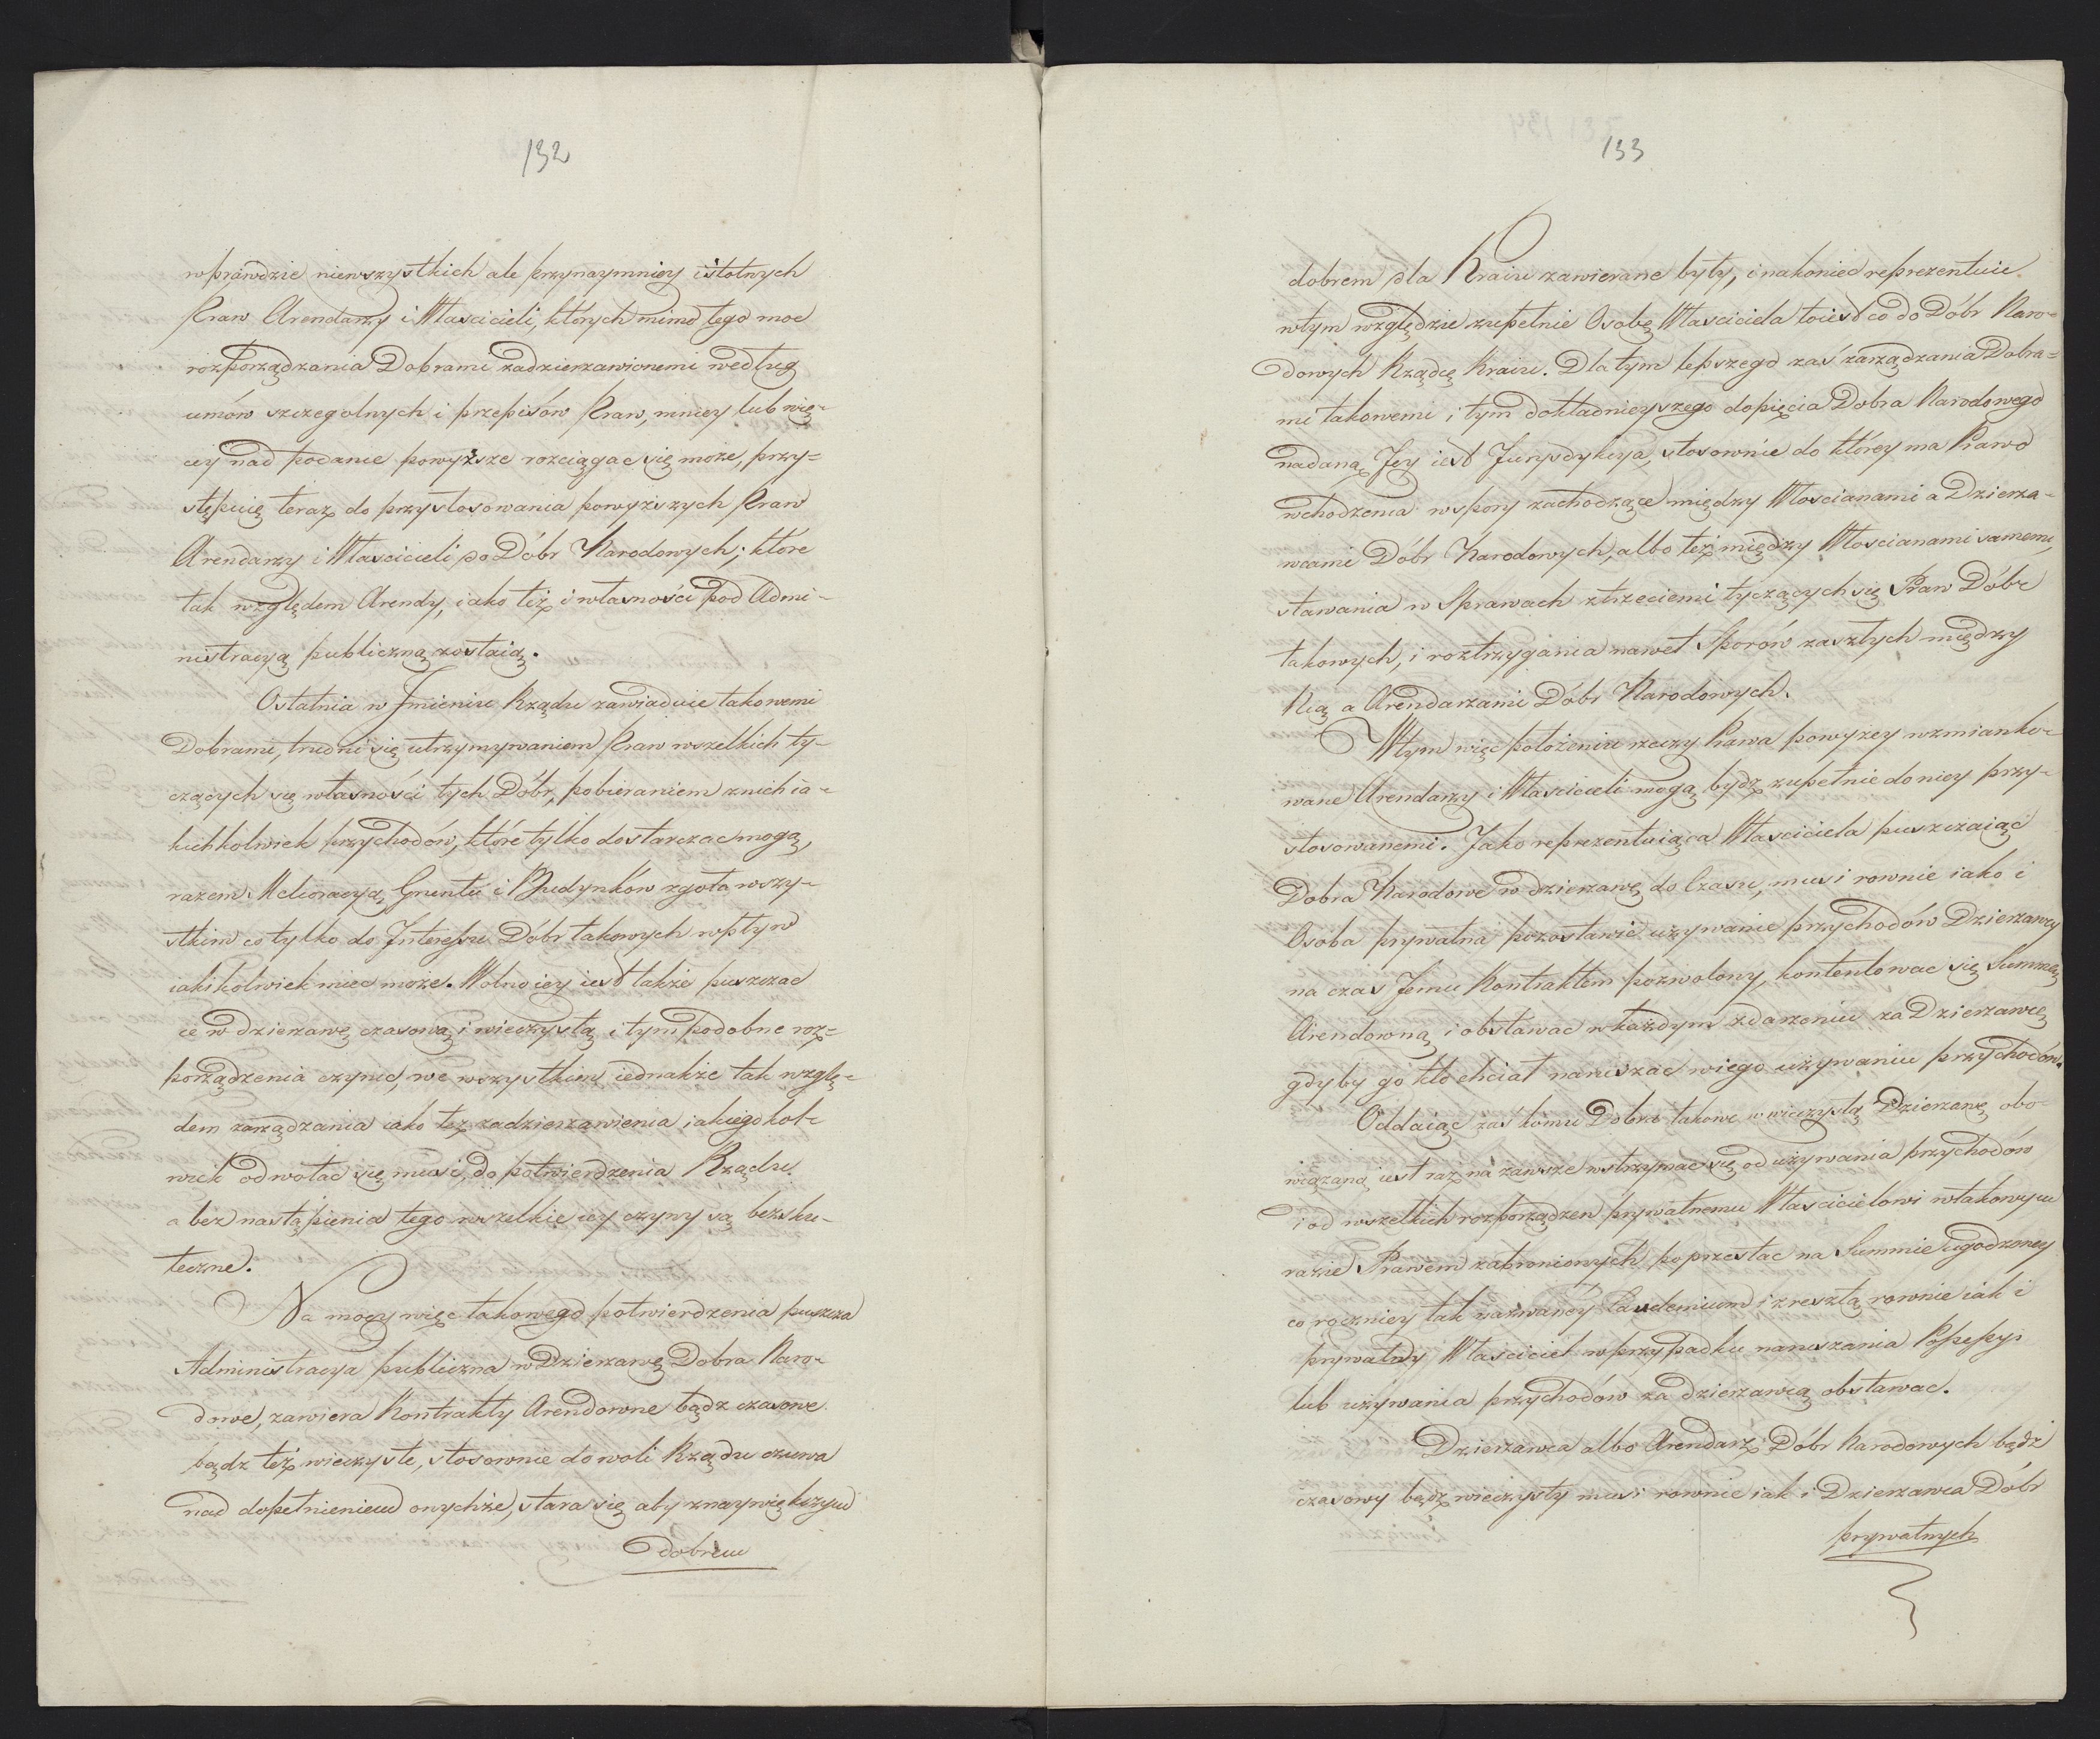 132
wprawdzie niewszystkich ale przynaymniey istotnych
Praw Arendarzy i Włascicieli, ktorych mimo tego moc
rozporządzania Dobrami zadzierzawionemi według
umów szczegolnych i przepisów Praw, mniey lub wię-
cey nad podanie powyższe rozciągac się może, przy-
stępuię teraz do przystosowania powyzszych Praw
Arendarzy i Własciceli do Dóbr Narodowych; które
tak względem Arendy, iako też i własności pod Admi-
nistracyą publiczną zostaią.
Ostatnia w Jmieniu Rządu zawiaduie takowemi
Dobrami, trudni się utrzymywaniem Praw wszelkich ty-
czących się własności tych Dóbr, pobieraniem znich ia-
kichkolwiek przychodów, które tylko dostarczac mogą,
razem Melioracyą Gruntu i Budynków zgoła wszy-
stkim co tylko do Interessu Dóbr takowych wpływ
iakikolwiek miec może. Wolno iey iest także puszczac
ie w dzierzawę czasową i wieczystą i tym podobne roz-
porządzenia czynic, we wszystkim iednakże tak wzglę-
dem zarządzania iako też zadzierzawienia iakiegokol-
wiek odwołac się musi, do potwierdzenia Rządu,
a bez nastąpienia tego wszelkie iey czyny są bezsku-
teczne.
Na mocy więc takowego potwierdzenia puszcza
Administracya publiczna w Dzierzawę Dobra Naro-
dowe, zawiera Kontrakty Arendowne bądz czasowe
bądz też wieczyste, stosownie do woli Rządu czuwa
nad dopełnieniem onychże, stara się aby znaywiększym
dobrem
133
dobrem dla Kraiu zawierane były, i nakoniec reprezentuie
wtym względzie zupełnie Osobę Własciciela toiest co do Dóbr Naro-
dowych Rządcę Kraiu. Dla tym lepszego zaś zarządzania Dobra-
mi takowemi i tym dokładnieyszego dopięcia Dobra Narodowego
nadaną Jey iest Jurysdykcya, stosownie do którey ma Prawo
wchodzenia w spory zachodzące między Włoscianami a Dzierza-
wcami Dóbr Narodowych, albo też między Włoscianami samemi,
stawania w Sprawach ztrzeciemi tyczących się Praw Dóbr
takowych, i roztrzygania nawet Sporów zaszłych między
Nią a Arendarzami Dóbr Narodowych.
Wtym więc położeniu rzeczy Prawa powyzey wzmianko-
wane Arendarzy i Własciceli mogą bydz zupełnie do niey przy-
stosowanemi. Jako reprezentuiąca Własciciela puszczaiąc
Dobra Narodowe w dzierzawę do Czasu, musi rownie iako i
Osoba prywatna pozostawic uzywanie przychodów Dzierzawcy
na czas Jemu Kontraktem pozwolony, kontentowac się Summą
Arendowną i obstawac wkażdym zdarzeniu za Dzierzawcę
gdyby go kto chciał naruszac wiego uzywaniu przychodów.
Oddaiąc zaś komu Dobra takowe w wieczystą Dzierzawę obo-
wiązaną iest raz na zawsze wstrzymac się od uzywania przychodów
i od wszelkich rozporządzeń prywatnemu Własciclelowi wtakowym
razie Prawem zabronionych, poprzestac na Summie ugodzoney
co roczniey tak nazwaney Laudemium i zresztą rownie iak i
prywatny Właściciel wprzypadku naruszania Possessyi
lub uzywania przychodów za dzierzawcą obstawac.
Dzierzawca albo Arendarz Dóbr Narodowych bądź
czasowy bądz wieczysty musi rownie iak i Dzierzawca Dóbr
prywatnych